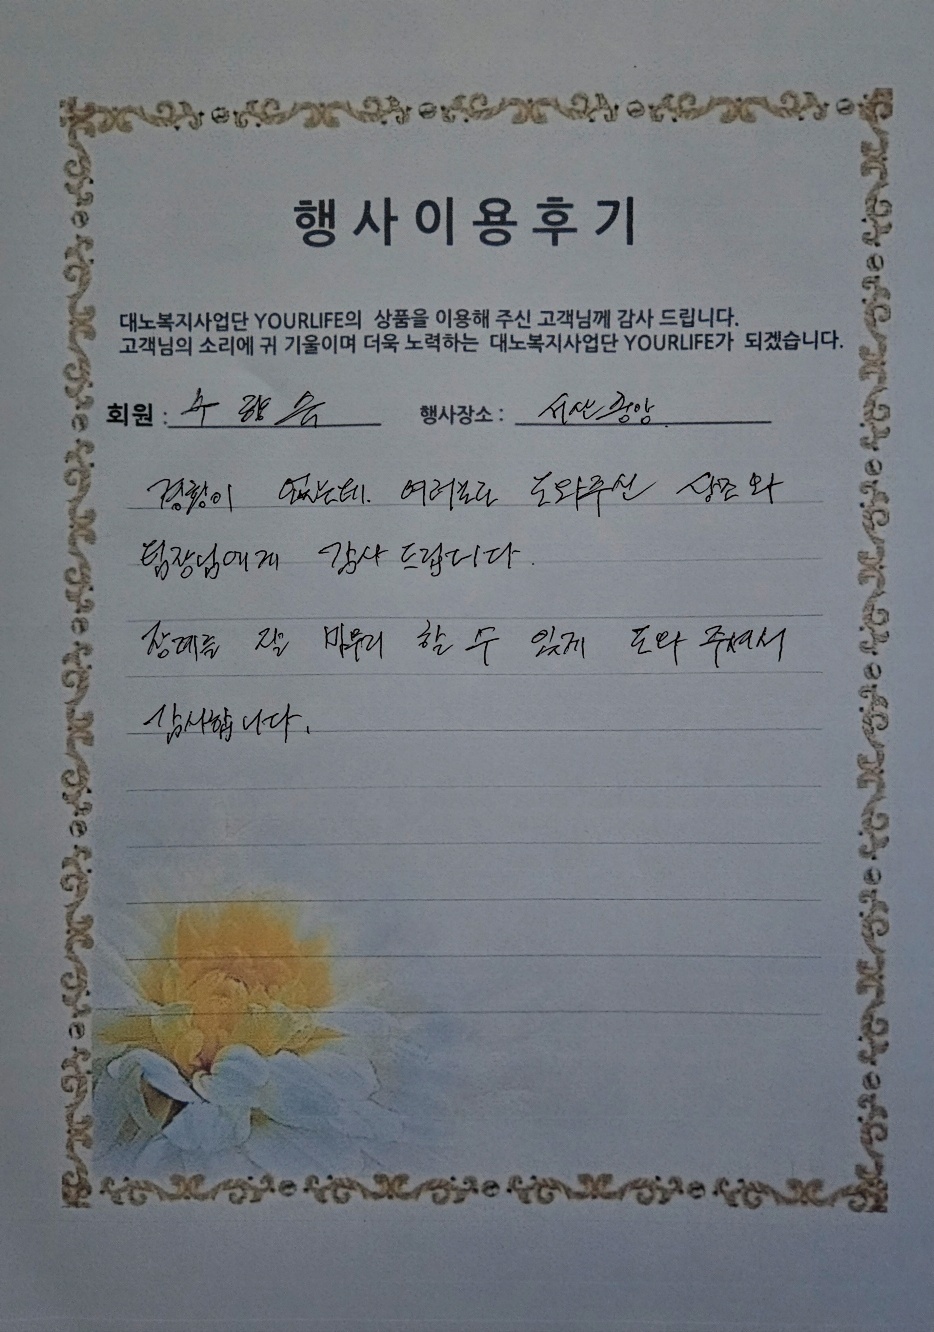 행사이용후기
대노복지사업단 YOURLIFE의 상품을 이용해 주신 고객님께 감사 드립니다.
고객님의 소리에 귀 기울이며 더욱 노력하는 대노복지사업단 YOURLIFE가 되겠습니다.
회원 : 행사장소 : 서산중앙
경황이 없는데. 여러모로 도와주신 상조와
팀장님에게 감사 드립니다.
장례를 잘 마무리 할 수 있게 도와 주셔서
감사합니다.